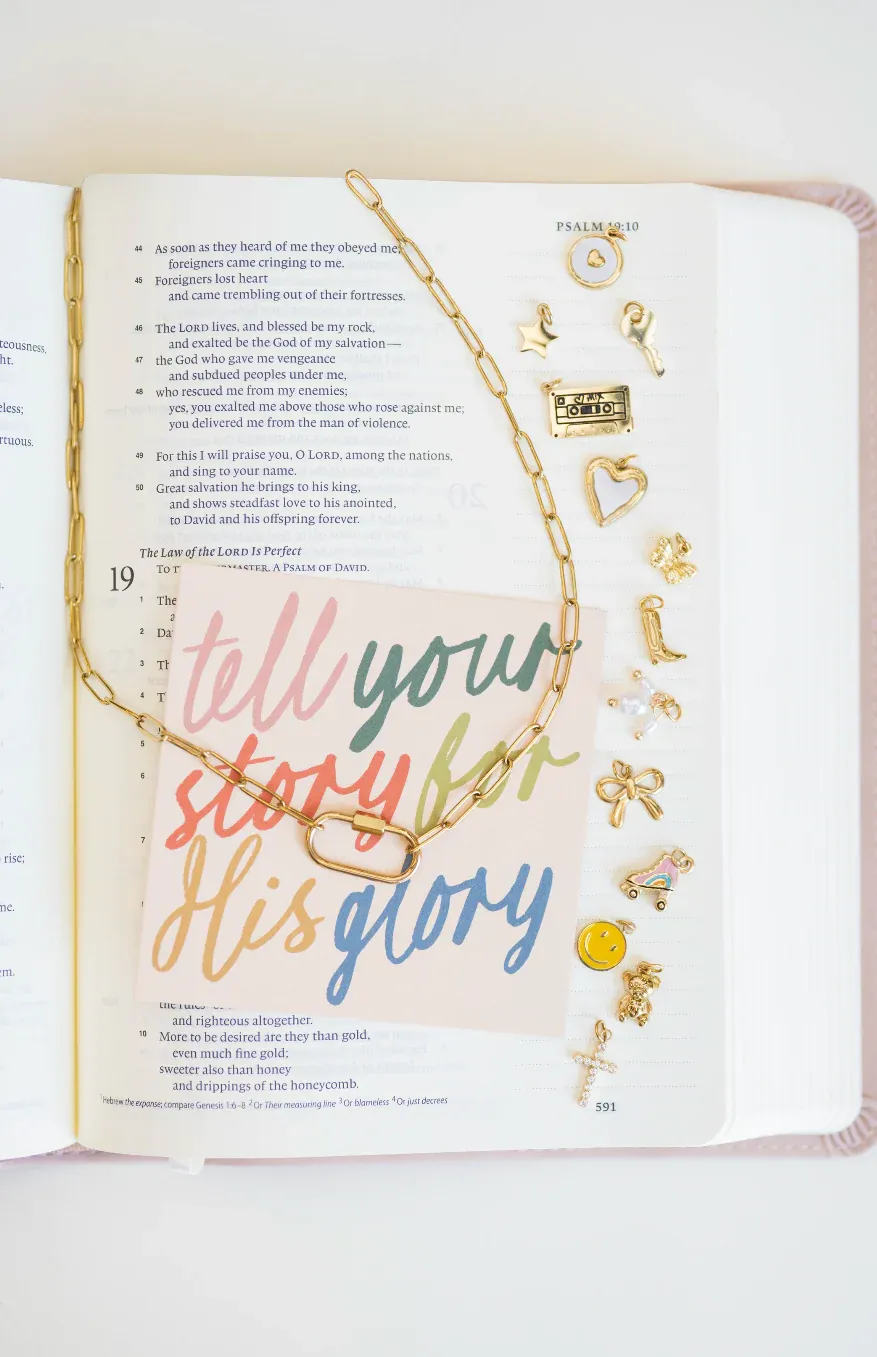 PSALM 19:10
teousness,
ht.
eless;
rtuous.
rise;
me.
m.
44 As soon as they heard of me they obeyed me;
foreigners came cringing to me.
45 Foreigners lost heart
and came trembling out of their fortresses.
46 The LORD lives, and blessed be my rock,
and exalted be the God of my salvation—
47 the God who gave me vengeance
and subdued peoples under me,
48 who rescued me from my enemies;
yes, you exalted me above those who rose against me;
you delivered me from the man of violence.
49 For this I will praise you, O LORD, among the nations,
and sing to your name.
50 Great salvation he brings to his king,
and shows steadfast love to his anointed,
to David and his offspring forever.
The Law of the LORD Is Perfect
19 TO T RMASTER. A PSALM OF DAVID.
1 The
a
2 Da
3 Th
4 T
5
6
7
tell your
story for
His glory
the rules
and righteous altogether.
10 More to be desired are they than gold,
even much fine gold;
sweeter also than honey
and drippings of the honeycomb.
1 Hebrew the expanse; compare Genesis 1:6–8 2 Or Their measuring line 3 Or blameless 4 Or just decrees
591